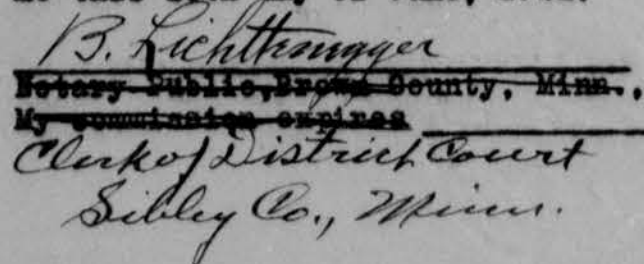 B. Lichttenegger
Notary Public, Brown County, Minn.,
My commission expires
Clerk of District Court
Sibley Co., Minn.